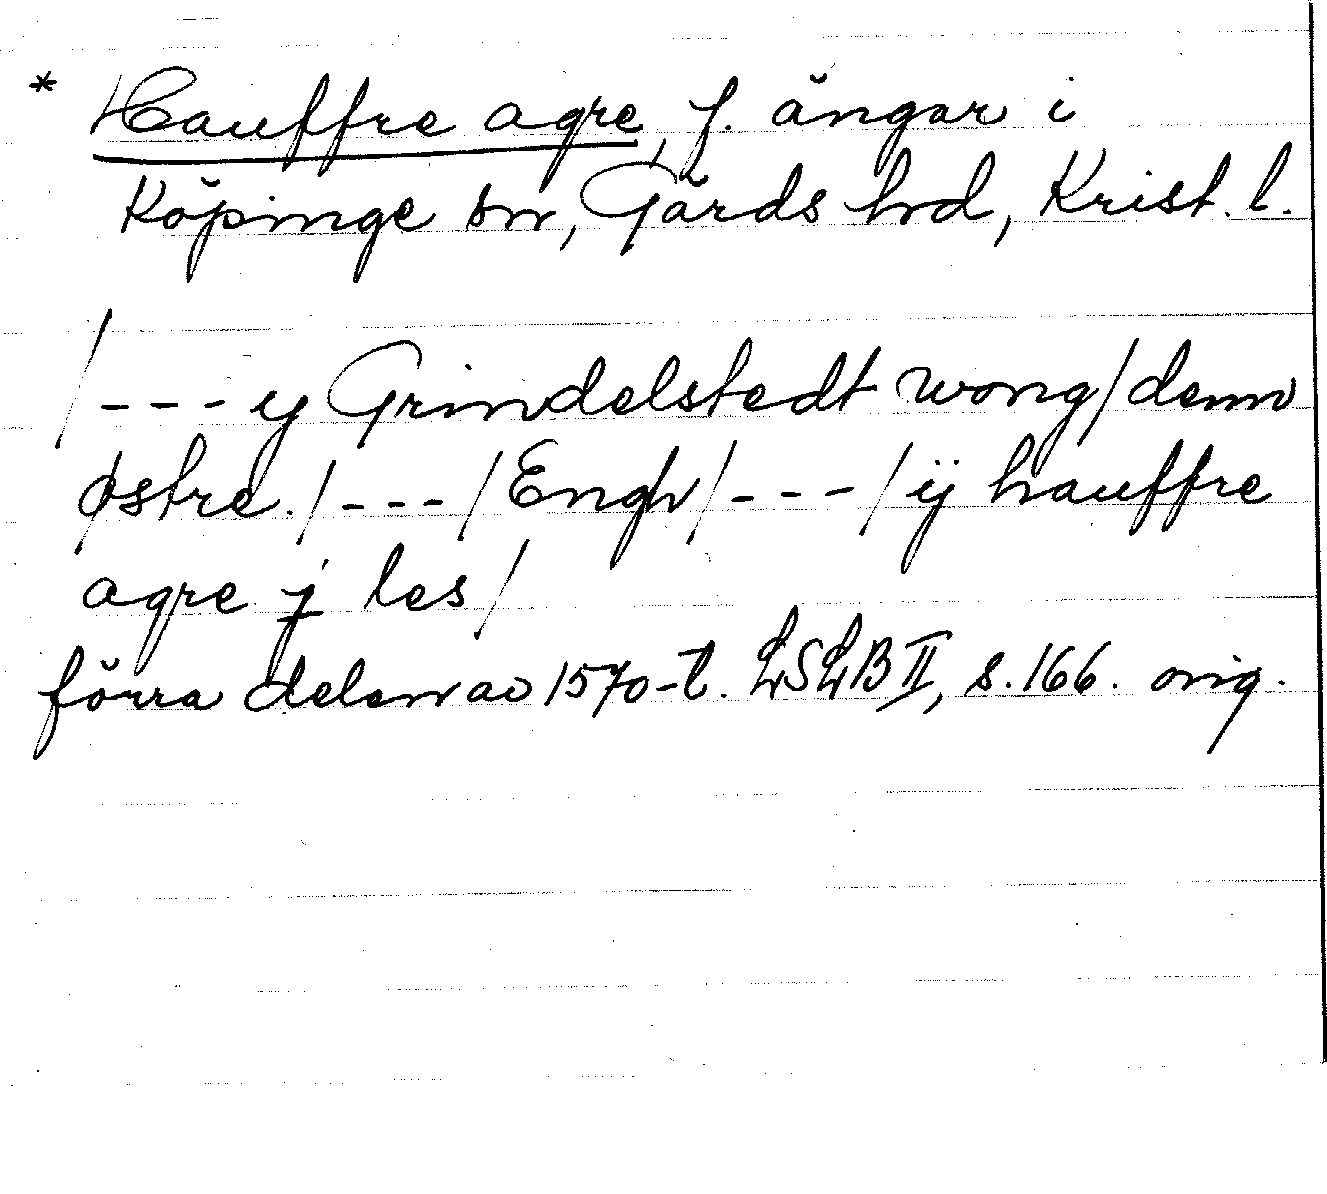 * Hauffre agre, f. ängar i
Köpinge sn, Gärds hrd, Krist. l.
/---y Grindelstedt wong/denn
østre./---/Engh/---/ÿ hauffre
agre j les/
förra delen av 1570-t. LSLB II, s. 166. orig.